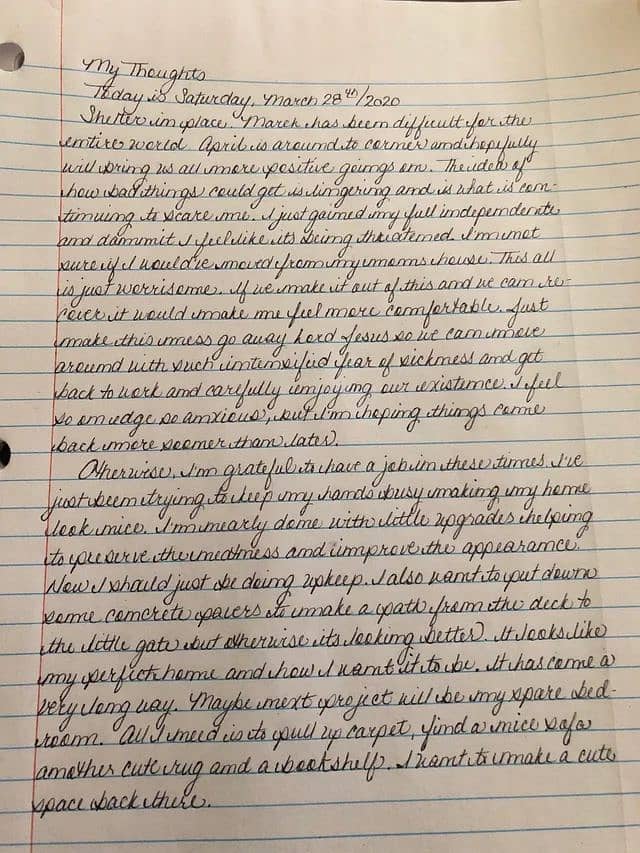 My Thoughts
Today is Saturday, March 28th/2020
Shelter in place. March has been difficult for the
entire world. April is around te corner and hopefully
will bring us all more positive goings on. The idea of
how bad things could get is lingering and is what is con-
tinuing to scare me. I just gained my full independente
and dammit I feel like its being threatened. I'm not
sure if I would've moved from my moms house. This all
is just worrisome. If we make it out of this and we can re-
cover it would make me feel more comfortable. Just
make this mess go away Lord Jesus so we can move
around with such intensified fear of sickness and get
back to work and carefully enjoying our existence. I feel
so on edge so anxious, but I'm hoping things come
back more sooner than later.
Otherwise, I'm grateful to have a job in these times. I've
just been trying to keep my hands busy making my home
look nice. I'm nearly done with little upgrades helping
to preserve the neatness and improve the appearance.
Now I should just be doing upkeep. I also want to put down
some concrete pavers to make a path from the deck to
the little gate but otherwise its looking better. It looks like
my perfect home and how I want it to be. It has come a
very long way. Maybe next project will be my spare bed-
room. All I need is to pull up carpet, find a nice sofa
another cute rug and a bookshelf. I want to make a cute
space back there.